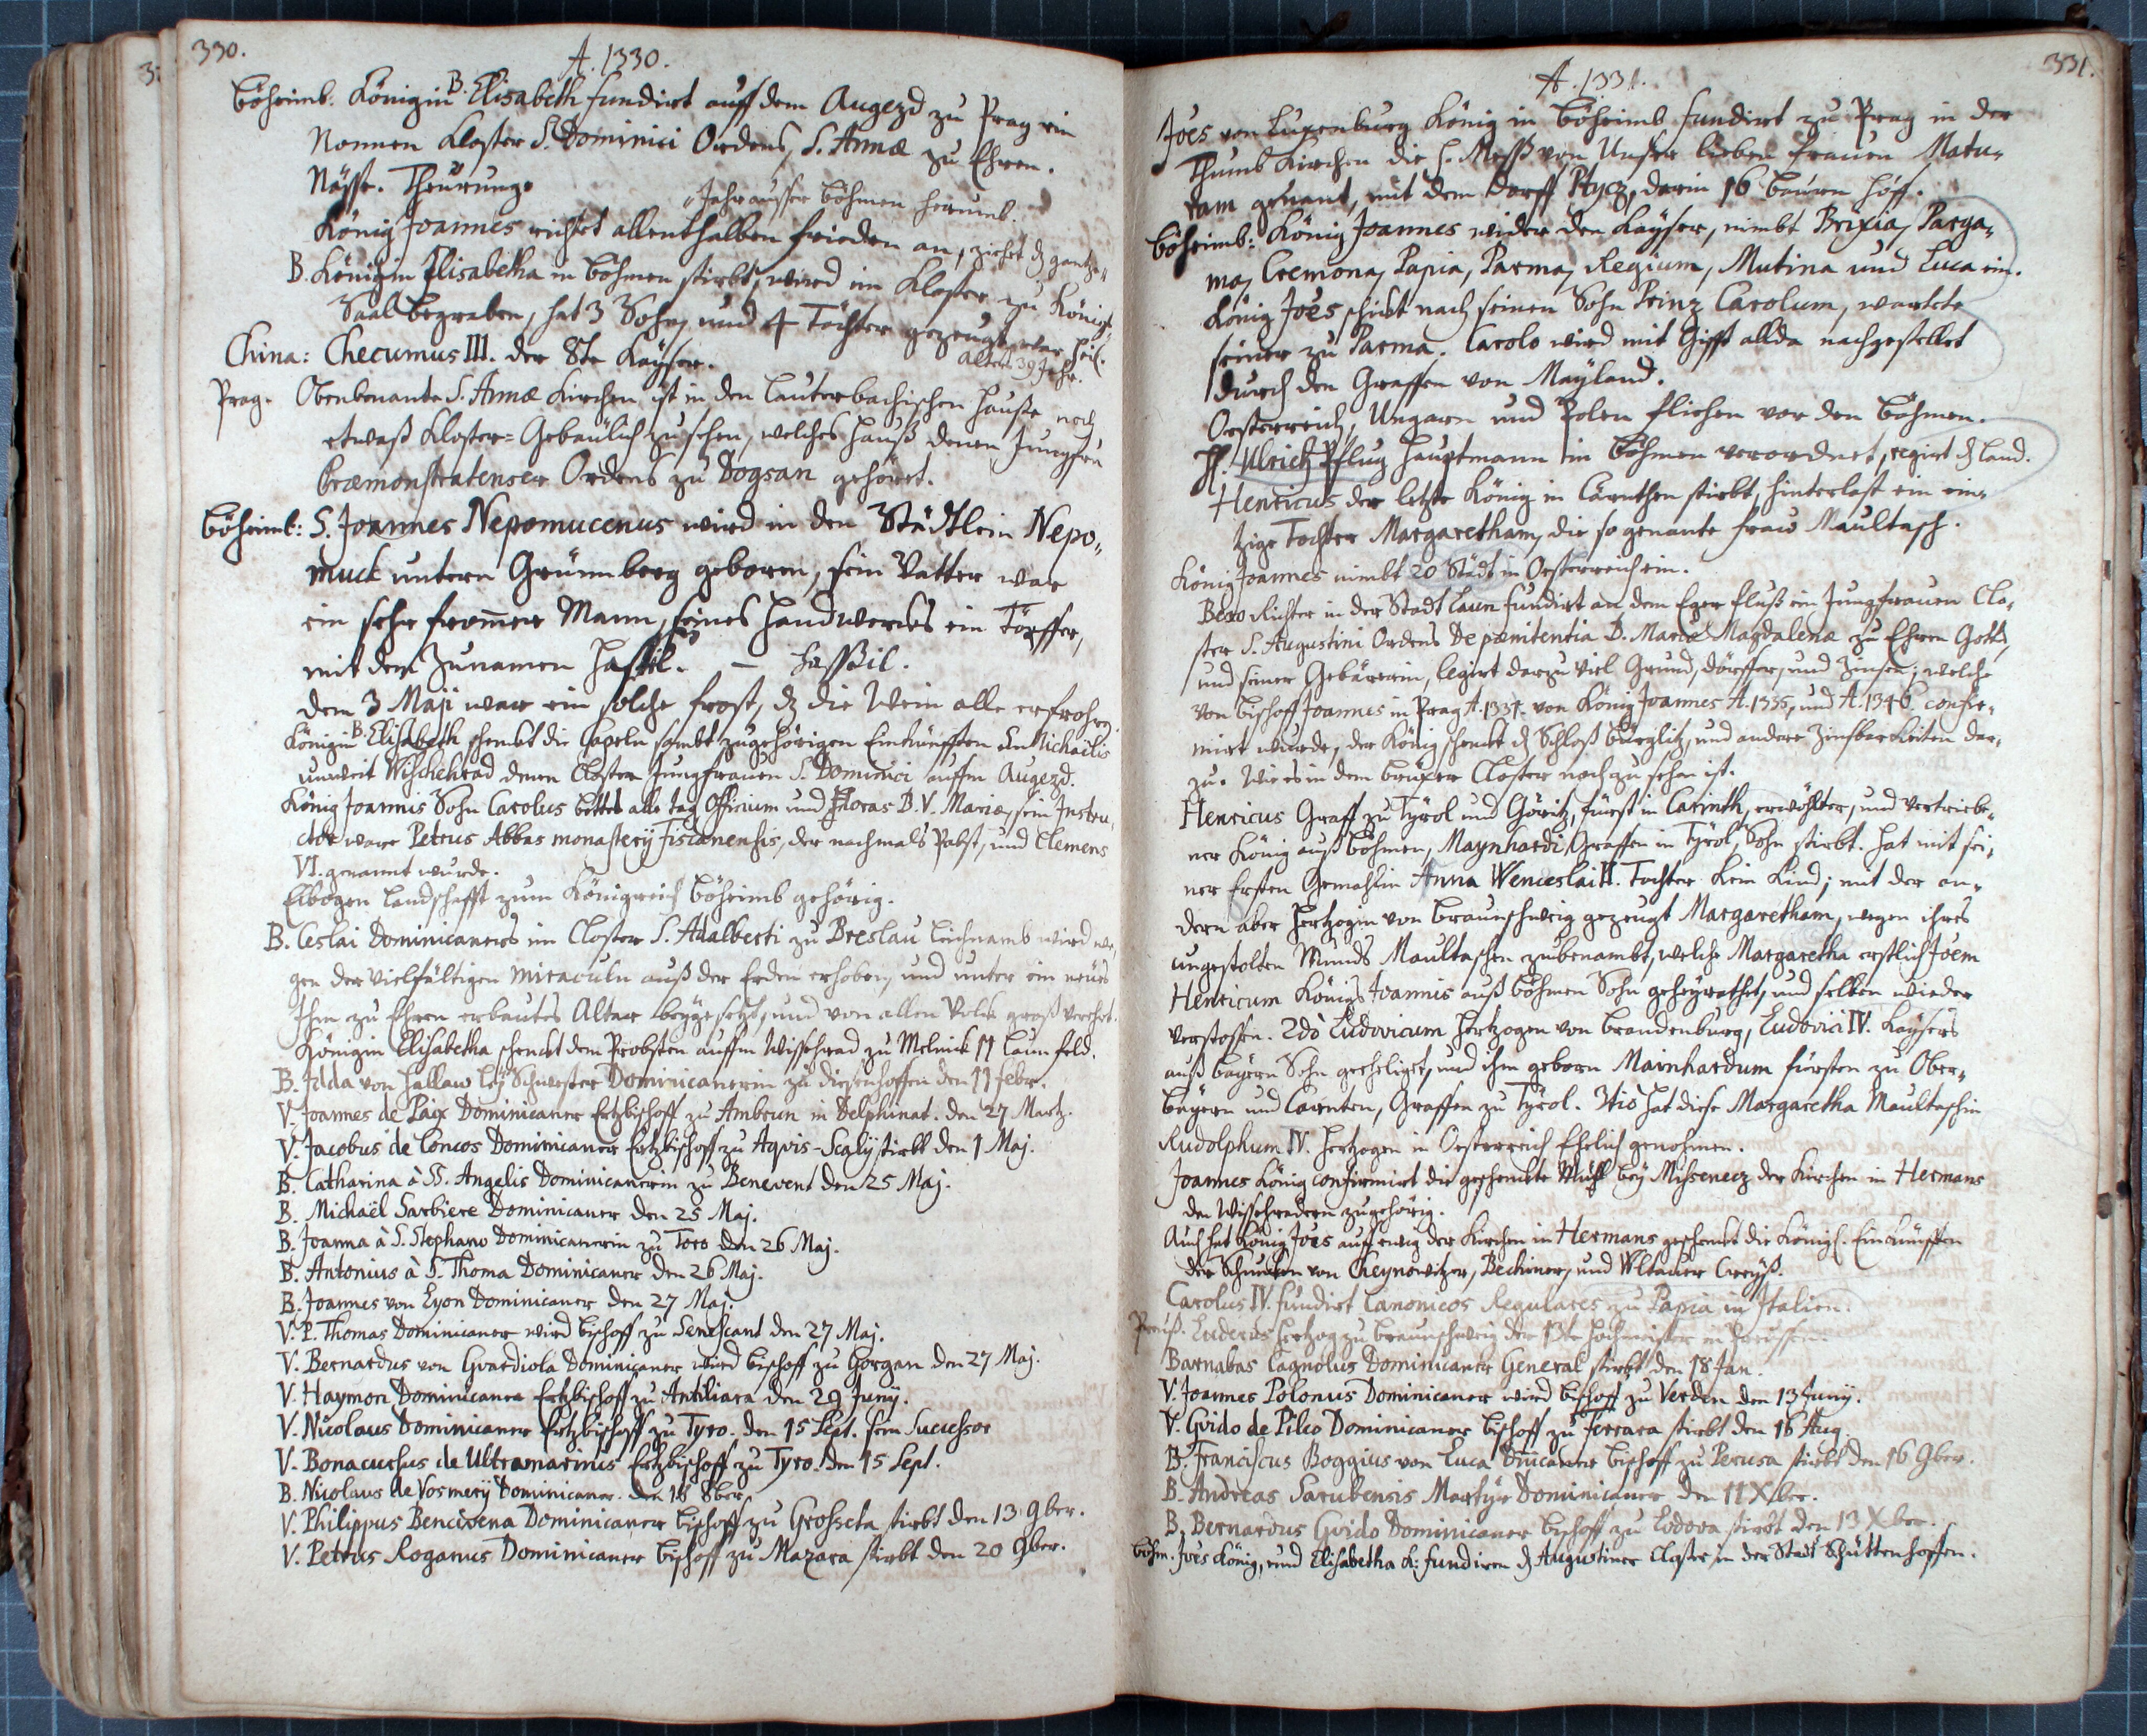 330.
A. 1330.
Böheimb. Königin B. Elisabeth fundirt auff dem Augezd zu Prag ein
Nonnen Kloster S. Dominici Ordens, S. Annæ zu Ehren.
Nässe. Theurung.
Jahr ausser Böhmen herumb.
König Joannes richtet allenthalben frieden an, ziehet dz gantze
B. Königin Elisabetha in Böhmen stirbt, wird im Kloster zu König
Saal begraben, hat 3 Sohn, und 4 Töchter gezeugt, war
alters 39 Jahr.
China: Checumus III. der 8te Kayser.
Prag. Obenbenante S. Annæ Kirchen ist in den Lauterbachischen Hauße noch
etwaß Kloster=Gebäulich zu sehen, welches Hauß denen Jungfrn
Præmonstratenser Ordens zu Dogsan gehöret.
Böheimb: S. Joannes Nepomucenus wird in den Städtlein Nepo-
muck untern Grünnberg geboren, sein Vatter war
ein sehr from̄er Mann, seines Handwercks ein Töpffer,
mit dem Zunamen Hassil. — Hassßil.
Den 3 Maji war ein solche frost, dz die Wein alle erfrohrn
Königin B. Elisabeth schenckt die Capeln sambt zugehörigen Einkünfften Michaëlis
unweit Wischehrad denen Closter Jungfrauen S. Dominici auffm Augezd.
König Joannis Sohn Carolus bettet alle tag Officium und Horas B. V. Mariæ, sein Instru-
ctor ware Petrus Abbas monasterij Fiscanensis, der nachmals Pabst, und Clemens
VI. genannt wurde.
Elbogen Landschafft zum Königreich Böheimb gehörig.
B. Ceslai Dominicaners im Closter S. Adalberti zu Breslau Leichnamb wird we-
gen der vielfältigen miraculn auß der Erden erhoben, und unter ein neües
Ihm zu Ehren erbautes Altar beygesetzt, und von allen Volck groß verehrt.
Königin Elisabetha schenckt dem Probsten auffm Wissehrad zu Melnick 11 Laun feld.
B. Idda von Hallaw Ley Schwester Dominicanerin zu Diesenhoffen den 11 Febr.
V. Joannes de Paix Dominicaner Ertzbischoff zu Ambrun in Delphinat. den 27 Martz.
V. Jacobus de Concos Dominicaner Ertzbischoff zu Aqvis-Scalÿ stirbt den 1 Maj.
B. Catharina à SS. Angelis Dominicanerin zu Benevent den 25 Maj.
B. Michaël Sarbiere Dominicaner den 25 Maj.
B. Joanna à S. Stephano Dominicanerin zu Toro den 26 Maj.
B. Antonius à S. Thoma Dominicaner den 26 Maj.
B. Joannes von Lyon Dominicaner den 27 Maj.
V. P. Thomas Dominicaner wird Bischoff zu Senescant den 27 Maj.
V. Bernardus von Gvardiola Dominicaner wird Bischoff zu Gorgan den 27 Maj.
V. Haymon Dominicaner Ertzbischoff zu Antiliara den 29 Junÿ.
V. Nicolaus Dominicaner Ertzbischoff zu Tyro. den 15 Sept. sein Successor
V. Bonacursus de Ultramarinis Ertzbischoff zu Tyro. den 15 Sept.
B. Nicolaus de Vosmerÿ Dominicaner. den 18 8ber.
V. Philippus Bencivena Dominicaner Bischoff zu Grosseta stirbt den 13 9ber.
V. Petrus Roganus Dominicaner Bischoff zu Mazara stirbt den 20 9ber.
331.
A. 1331.
Joes von Luxenburg König in Böheimb fundirt zu Prag in der
Thumb Kirchen die H. Mess von Unser lieben Frauen Matu-
ram genant, mit dem Dorff Ptycz, darin 16 Bauern Höff.
Böheimb: König Joannes wider den Kayser, nimbt Brixia, Parga-
ma, Cremona, Papia, Parma, Regium, Mutina und Luca ein.
König Joes schickt nach seinen Sohn Prinz Carolum, wartete
seiner zu Parma. Carolo wird mit Gifft allda nachgestellet
durch den Graffen von Mayland.
Oesterreich, Ungarn und Polen fliehen vor den Böhmen.
H. Ulrich Pflug Hauptmann in Böhmen verordnet, regirt dz Land.
Henricus der letzte König in Cärnthen stirbt, hinterlast ein ein-
tzige Tochter Margaretham, die so genante Frau Maultasch.
König Joannes nimbt 20 Städt in Oesterreich ein.
Bero Richter in der Stadt Laun fundirt an dem Eger fluß ein Jungfrauen Clo-
ster S. Augustini Ordens De pænitentia B. Mariæ Magdalenæ zu Ehren Gott,
und seiner Gebärerin, legirt darzu viel Grund, Dörffer, und Zinsen; welche
von Bischoff Joannes in Prag A. 1331. von König Joannes A. 1335, und A. 1346. confir-
mirt wurde, der König schenckt dz Schloß Bürglitz, und andere Zinsbarkeiten dar-
zu. Wie es in dem Brüxer Closter noch zu sehen ist.
Henricus Graff zu Tyrol und Göritz, Fürst in Carinth, erwöhlter, und vertriebe-
ner König auß Böhmen, Maynhardi Graffen in Tyrol Sohn stirbt. hat mit sei-
ner Ersten Gemahlin Anna Wenceslai II. Tochter kein Kind; mit der an-
dern aber Hertzogin von Braunschweig gezeugt Margaretham, wegen ihres
ungestolten Munds Maultaschen zubenambt, welche Margaretha erstlich Joem
Henricum Königs Joannis auß Böhmen Sohn geheyrathet, und selben wieder
verstossen. 2dò Ludovicum Hertzogen von Brandenburg, Ludovici IV. Kaysers
auß Bayern Sohn geeheliget, und ihm geborn Mainhardum fürsten zu Ober-
bayern und Carnten, Graffen zu Tyrol. 3tiò hat diese Margaretha Maultaschin
Rudolphum IV. Hertzogen in Oesterreich Ehelich genohmen.
Joannes König confirmirt die geschenckte Mühl bey Mysenecz der Kirchen in Hermans
den Wissehradern zugehörig.
Auch hat König Joes auff ewig der Kirchen in Hermans geschenckt die Königl. Einkünfften
der Schulden von Cheynowitzer, Bechiner, und Wltauer Creyß.
Carolus IV. fundirt Canonicos Regulares zu Papia in Italien.
Preüß. Luderus Hertzog zu Braunschweig der 13te Hochmeister in Preussen.
Barnabas Cagnolus Dominicaner General stirbt den 18 Jan.
V. Joannes Polonus Dominicaner wird Bischoff zu Verden den 13 Junÿ.
V. Gvido de Pileo Dominicaner Bischoff zu Ferrara stirbt den 16 Aug.
B. Franciscus Boggius von Luca Dnicaner Bischoff zu Perusa stirbt den 16 9ber.
B. Andreas Sarubensis Martyr Dominicaner den 11 Xber.
B. Bernardus Gvido Dominicaner Bischoff zu Lodova stirbt den 13 Xber.
Böhm. Joes König, und Elisabetha K: fundiren dz Augustiner Closter in der Stadt Schüttenhoffen.